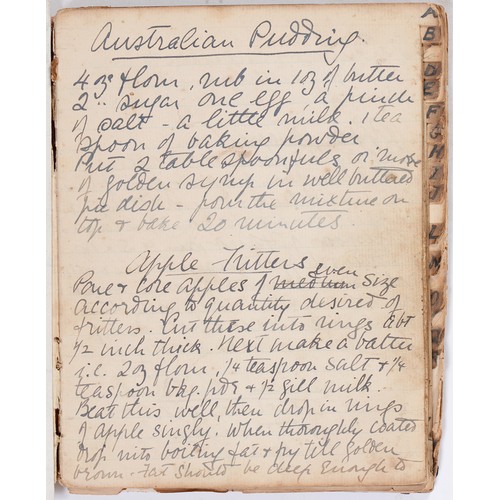 Australian Pudding.
4 oz flour, rub in 1 oz of butter
2 ,, sugar one egg, a pinch
of salt - a little milk. 1 tea
spoon of baking powder
Put 2 tablespoonfuls or more
of golden syrup in well buttered
pie dish - pour the mixture on
top & bake 20 minutes.
Apple Fritters
Pare & core apples of even size
according to quantity desired of
fritters. Cut these into rings abt
1/2 inch thick. Next make a batter
i.e. 2 oz flour, 1/4 teaspoon salt & 1/4
teaspoon bkg. pdr & 1/2 gill milk.
Beat this well, then drop in rings
of apple singly. When thoroughly coated
drop into boiling fat & fry till golden
brown. Fat should be deep enough to
A
B
D
E
F
G
H
I
J
L
N
O